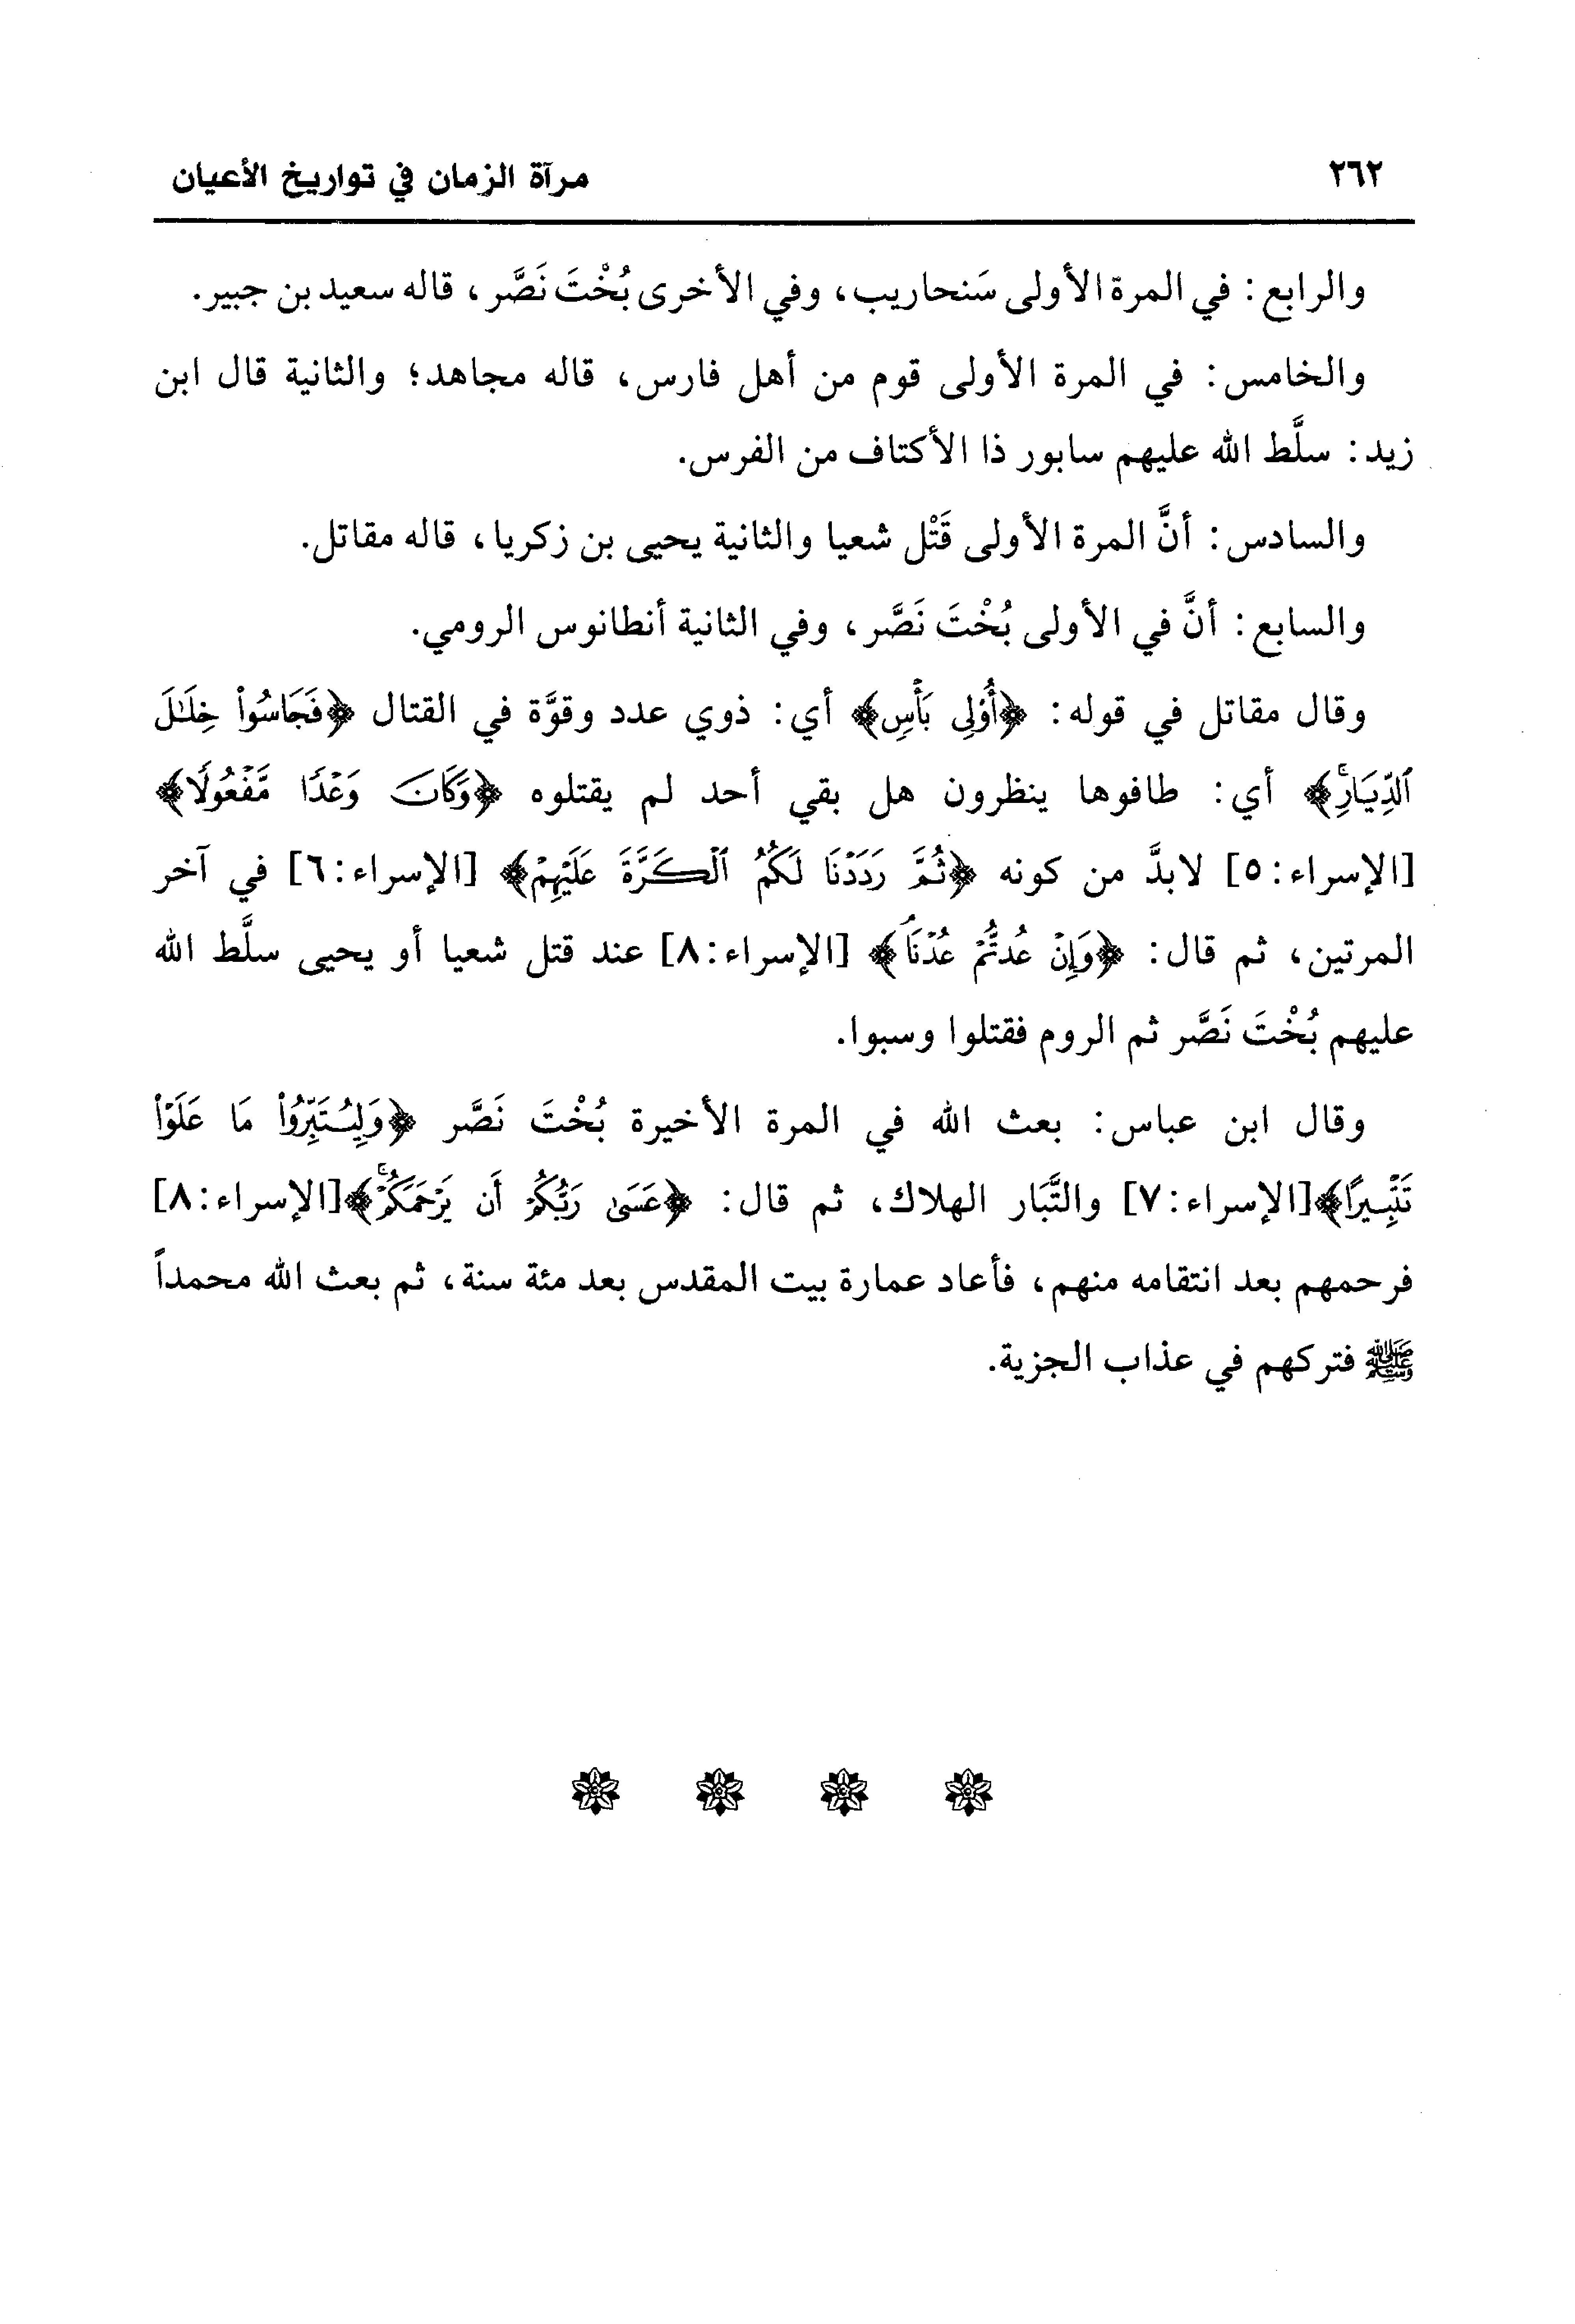 ٢٦٢ مرآة الزمان في تواريخ الأعيان
والرابع: في المرة الأولى سَنحاريب، وفي الأخرى بُخْتَ نَصَّر، قاله سعيد بن جبير.
والخامس: في المرة الأولى قوم من أهل فارس، قاله مجاهد؛ والثانية قال ابن
زيد: سلَّط الله عليهم سابور ذا الأكتاف من الفرس.
والسادس: أنَّ المرة الأولى قَتْل شعيا والثانية يحيى بن زكريا، قاله مقاتل.
والسابع: أنَّ في الأولى بُخْتَ نَصَّر، وفي الثانية أنطانوس الرومي.
وقال مقاتل في قوله: ﴿أُوْلِى بَأْسٍ﴾ أي: ذوي عدد وقوَّة في القتال ﴿فَجَاسُواْ خِلَـٰلَ
ٱلدِّيَارِۚ﴾ أي: طافوها ينظرون هل بقي أحد لم يقتلوه ﴿وَكَانَ وَعْدًا مَّفْعُولًا﴾
[الإسراء:٥] لابدَّ من كونه ﴿ثُمَّ رَدَدْنَا لَكُمُ ٱلْكَرَّةَ عَلَيْهِمْ﴾ [الإسراء:٦] في آخر
المرتين، ثم قال: ﴿وَإِنْ عُدتُّمْ عُدْنَاۘ﴾ [الإسراء:٨] عند قتل شعيا أو يحيى سلَّط الله
عليهم بُخْتَ نَصَّر ثم الروم فقتلوا وسبوا.
وقال ابن عباس: بعث الله في المرة الأخيرة بُخْتَ نَصَّر ﴿وَلِيُتَبِّرُواْ مَا عَلَوْاْ
تَتْبِيرًا﴾[الإسراء:٧] والتَّبَار الهلاك، ثم قال: ﴿عَسَىٰ رَبُّكُمْ أَن يَرْحَمَكُمْۚ﴾[الإسراء:٨]
فرحمهم بعد انتقامه منهم، فأعاد عمارة بيت المقدس بعد مئة سنة، ثم بعث الله محمداً
ﷺ فتركهم في عذاب الجزية.